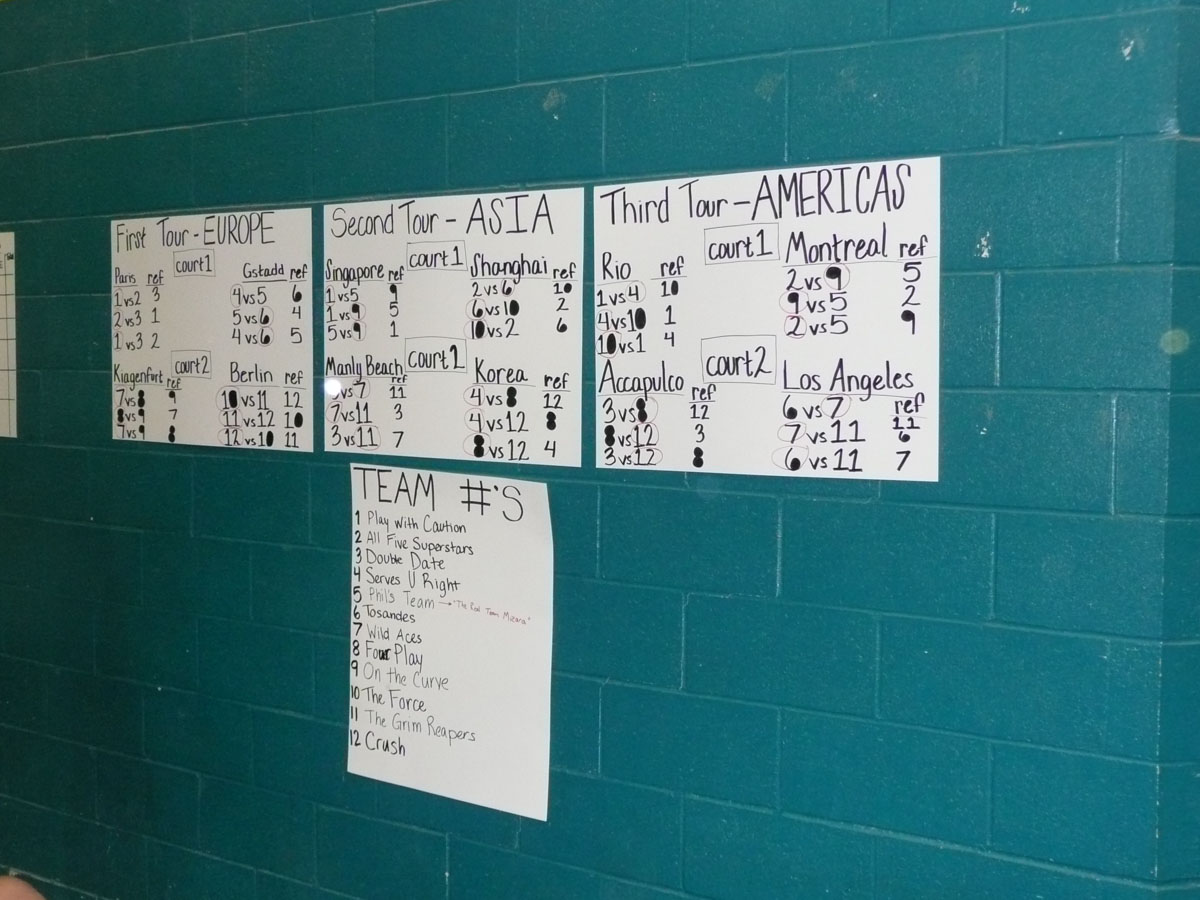 First Tour - EUROPE
court1
Paris ref
1 vs 2 3
2 vs 3 1
1 vs 3 2
Gstadd ref
4 vs 5 6
5 vs 6 4
4 vs 6 5
court2
Kiagenfurt ref
7 vs 8 9
8 vs 9 7
7 vs 9 8
Berlin ref
10 vs 11 12
11 vs 12 10
12 vs 10 11
Second Tour - ASIA
court1
Singapore ref
1 vs 5 9
1 vs 9 5
5 vs 9 1
Shanghai ref
2 vs 6 10
6 vs 10 2
10 vs 2 6
court1
Manly Beach ref
vs 7 11
7 vs 11 3
3 vs 11 7
Korea ref
4 vs 8 12
4 vs 12 8
8 vs 12 4
Third Tour - AMERICAS
court1
Rio ref
1 vs 4 10
4 vs 10 1
10 vs 1 4
Montreal ref
2 vs 9 5
9 vs 5 2
2 vs 5 9
court2
Accapulco ref
3 vs 8 12
8 vs 12 3
3 vs 12 8
Los Angeles ref
6 vs 7 11
7 vs 11 6
6 vs 11 7
TEAM #'S
1 Play with Caution
2 All Five Superstars
3 Double Date
4 Serves U Right
5 Phil's Team → "The Real Team
6 Tosandes
7 Wild Aces
8 Four Play
9 On the Curve
10 The Force
11 The Grim Reapers
12 Crush